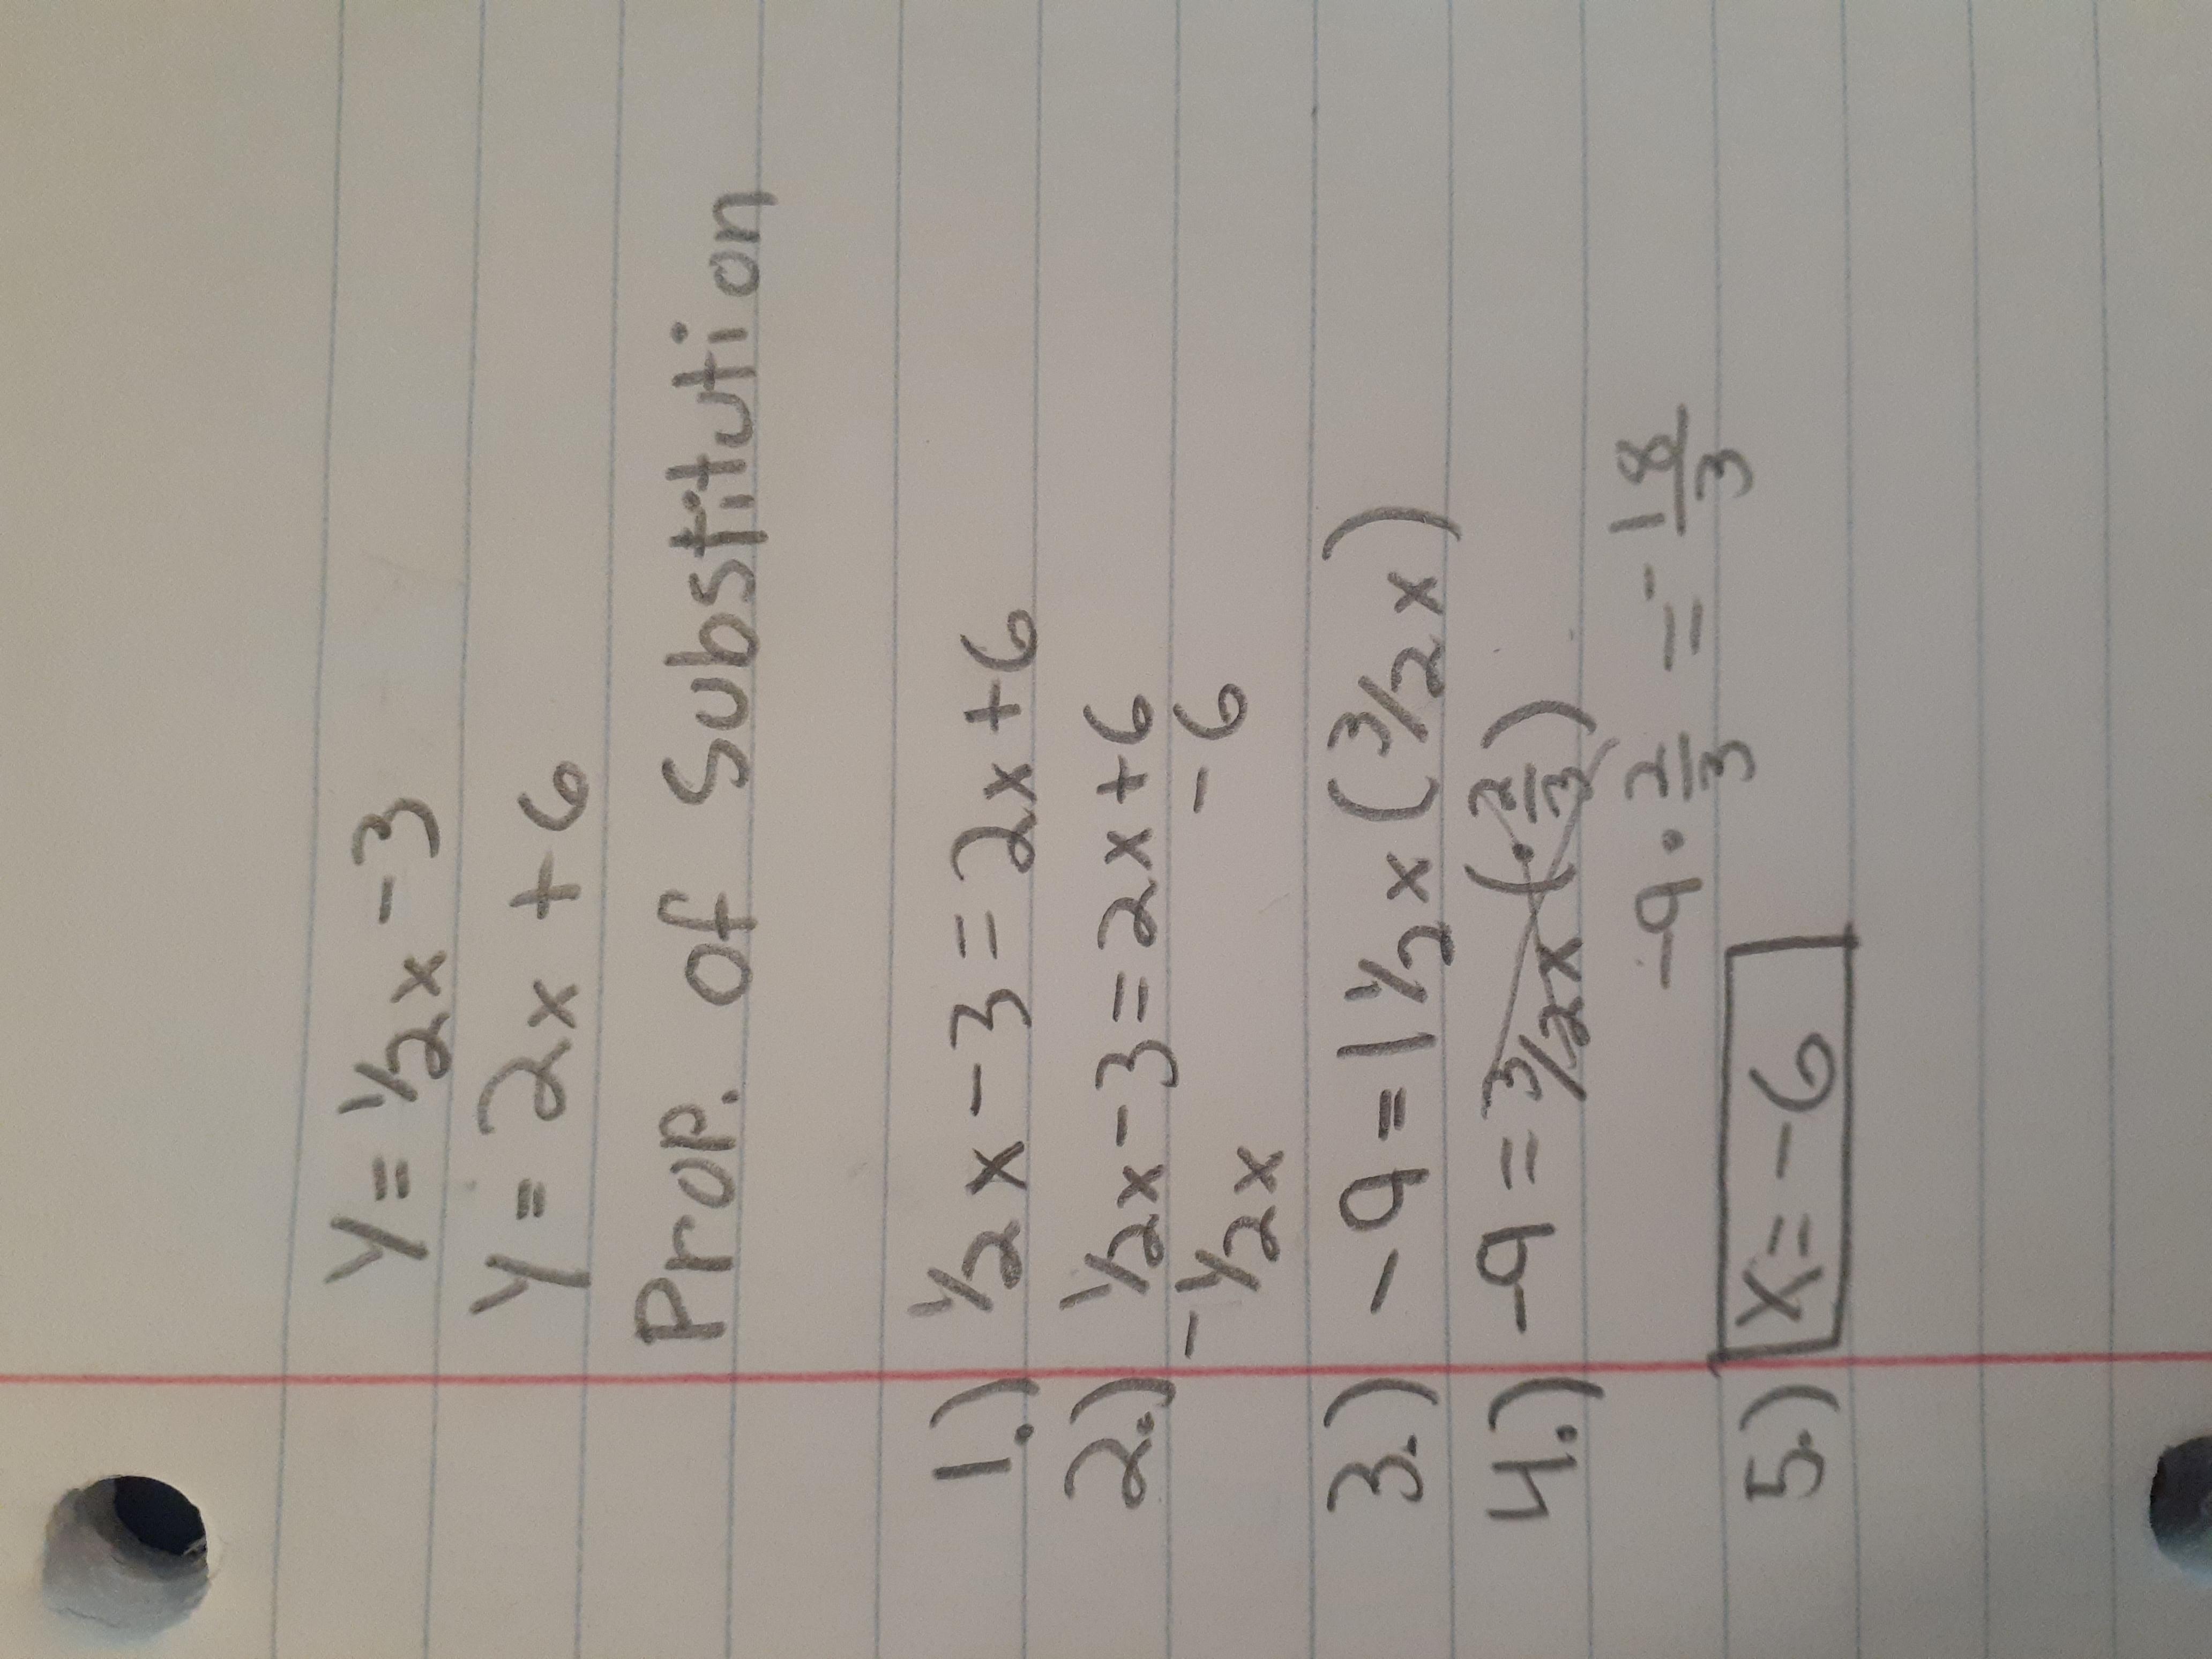 y = 1/2x - 3
y = 2x + 6
Prop. of Substitution
1.) 1/2x - 3 = 2x + 6
2.) 1/2x - 3 = 2x + 6
-1/2x - 6
3.) -9 = 1 1/2x (3/2x)
4.) -9 = 3/2x (· 2/3)
-9 · 2/3 = -18/3
5.) x = -6